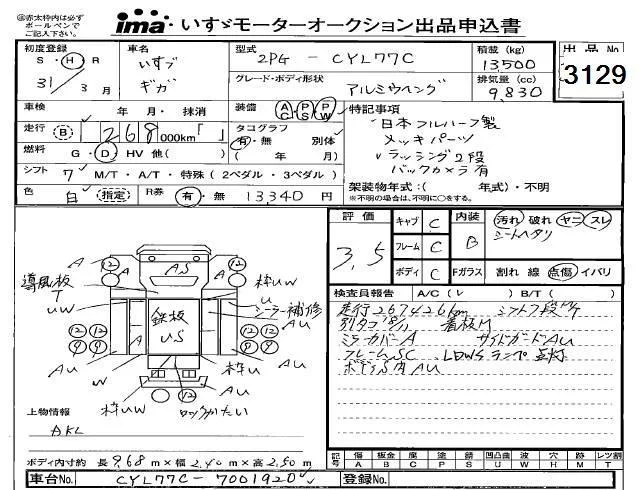 ㊟赤太枠内は必ず
ボールペンで
ご記入下さい。
ima いすゞモーターオークション出品申込書
初度登録 車名 型式 積載 (kg) 出品No
S・H・R いすゞ 2PG - CYL77C 13500 3129
31年3月 ギガ グレード・ボディ形状 アルミウィング 排気量 (cc) 9,830
車検 年・月・抹消 装備 AC PS PW 特記事項
走行 B 268,000km「 」 タコグラフ 有・無 別体 日本フルハーフ製
メッキパーツ
燃料 G・D・HV 他( ) ( 年 月) ラッシング2段
バックカメラ有
シフト 7 M/T・A/T・特殊 (2ペダル・3ペダル) 架装物年式:( 年式)・不明
色 白 (指定) R券 有・無 13340円 ※不明の場合は、不明に○をする。
評価 3.5 キャブ C 内装 B 汚れ 破れ ヤニ スレ
シートヘタリ
フレーム C
ボディ C Fガラス 割れ 線 点傷 イバリ
検査員報告 A/C (レ) B/T ( )
走行267426km シフト7段M/T
ミラーカバーA サイドガードAU
フレームSC LDWSランプ点灯
ボディS内AU
導風板
T
A A AS A 枠UW
U
UW シーラー補修
AU
鉄板
US
12 12 12 12 12 12
9 9 9 9
AU W 枠U
AU
枠UW ロックかたい AU
上物情報
AKL
ボディ内寸約 長9.68m×幅2.40m×高2.50m
記号 傷 板金 腐 塗 錆 凹 凸 凹凸曲 波 穴 跡 レツ割
A B C P S U W H M T
車台No. CYL77C-7001920 登録No.